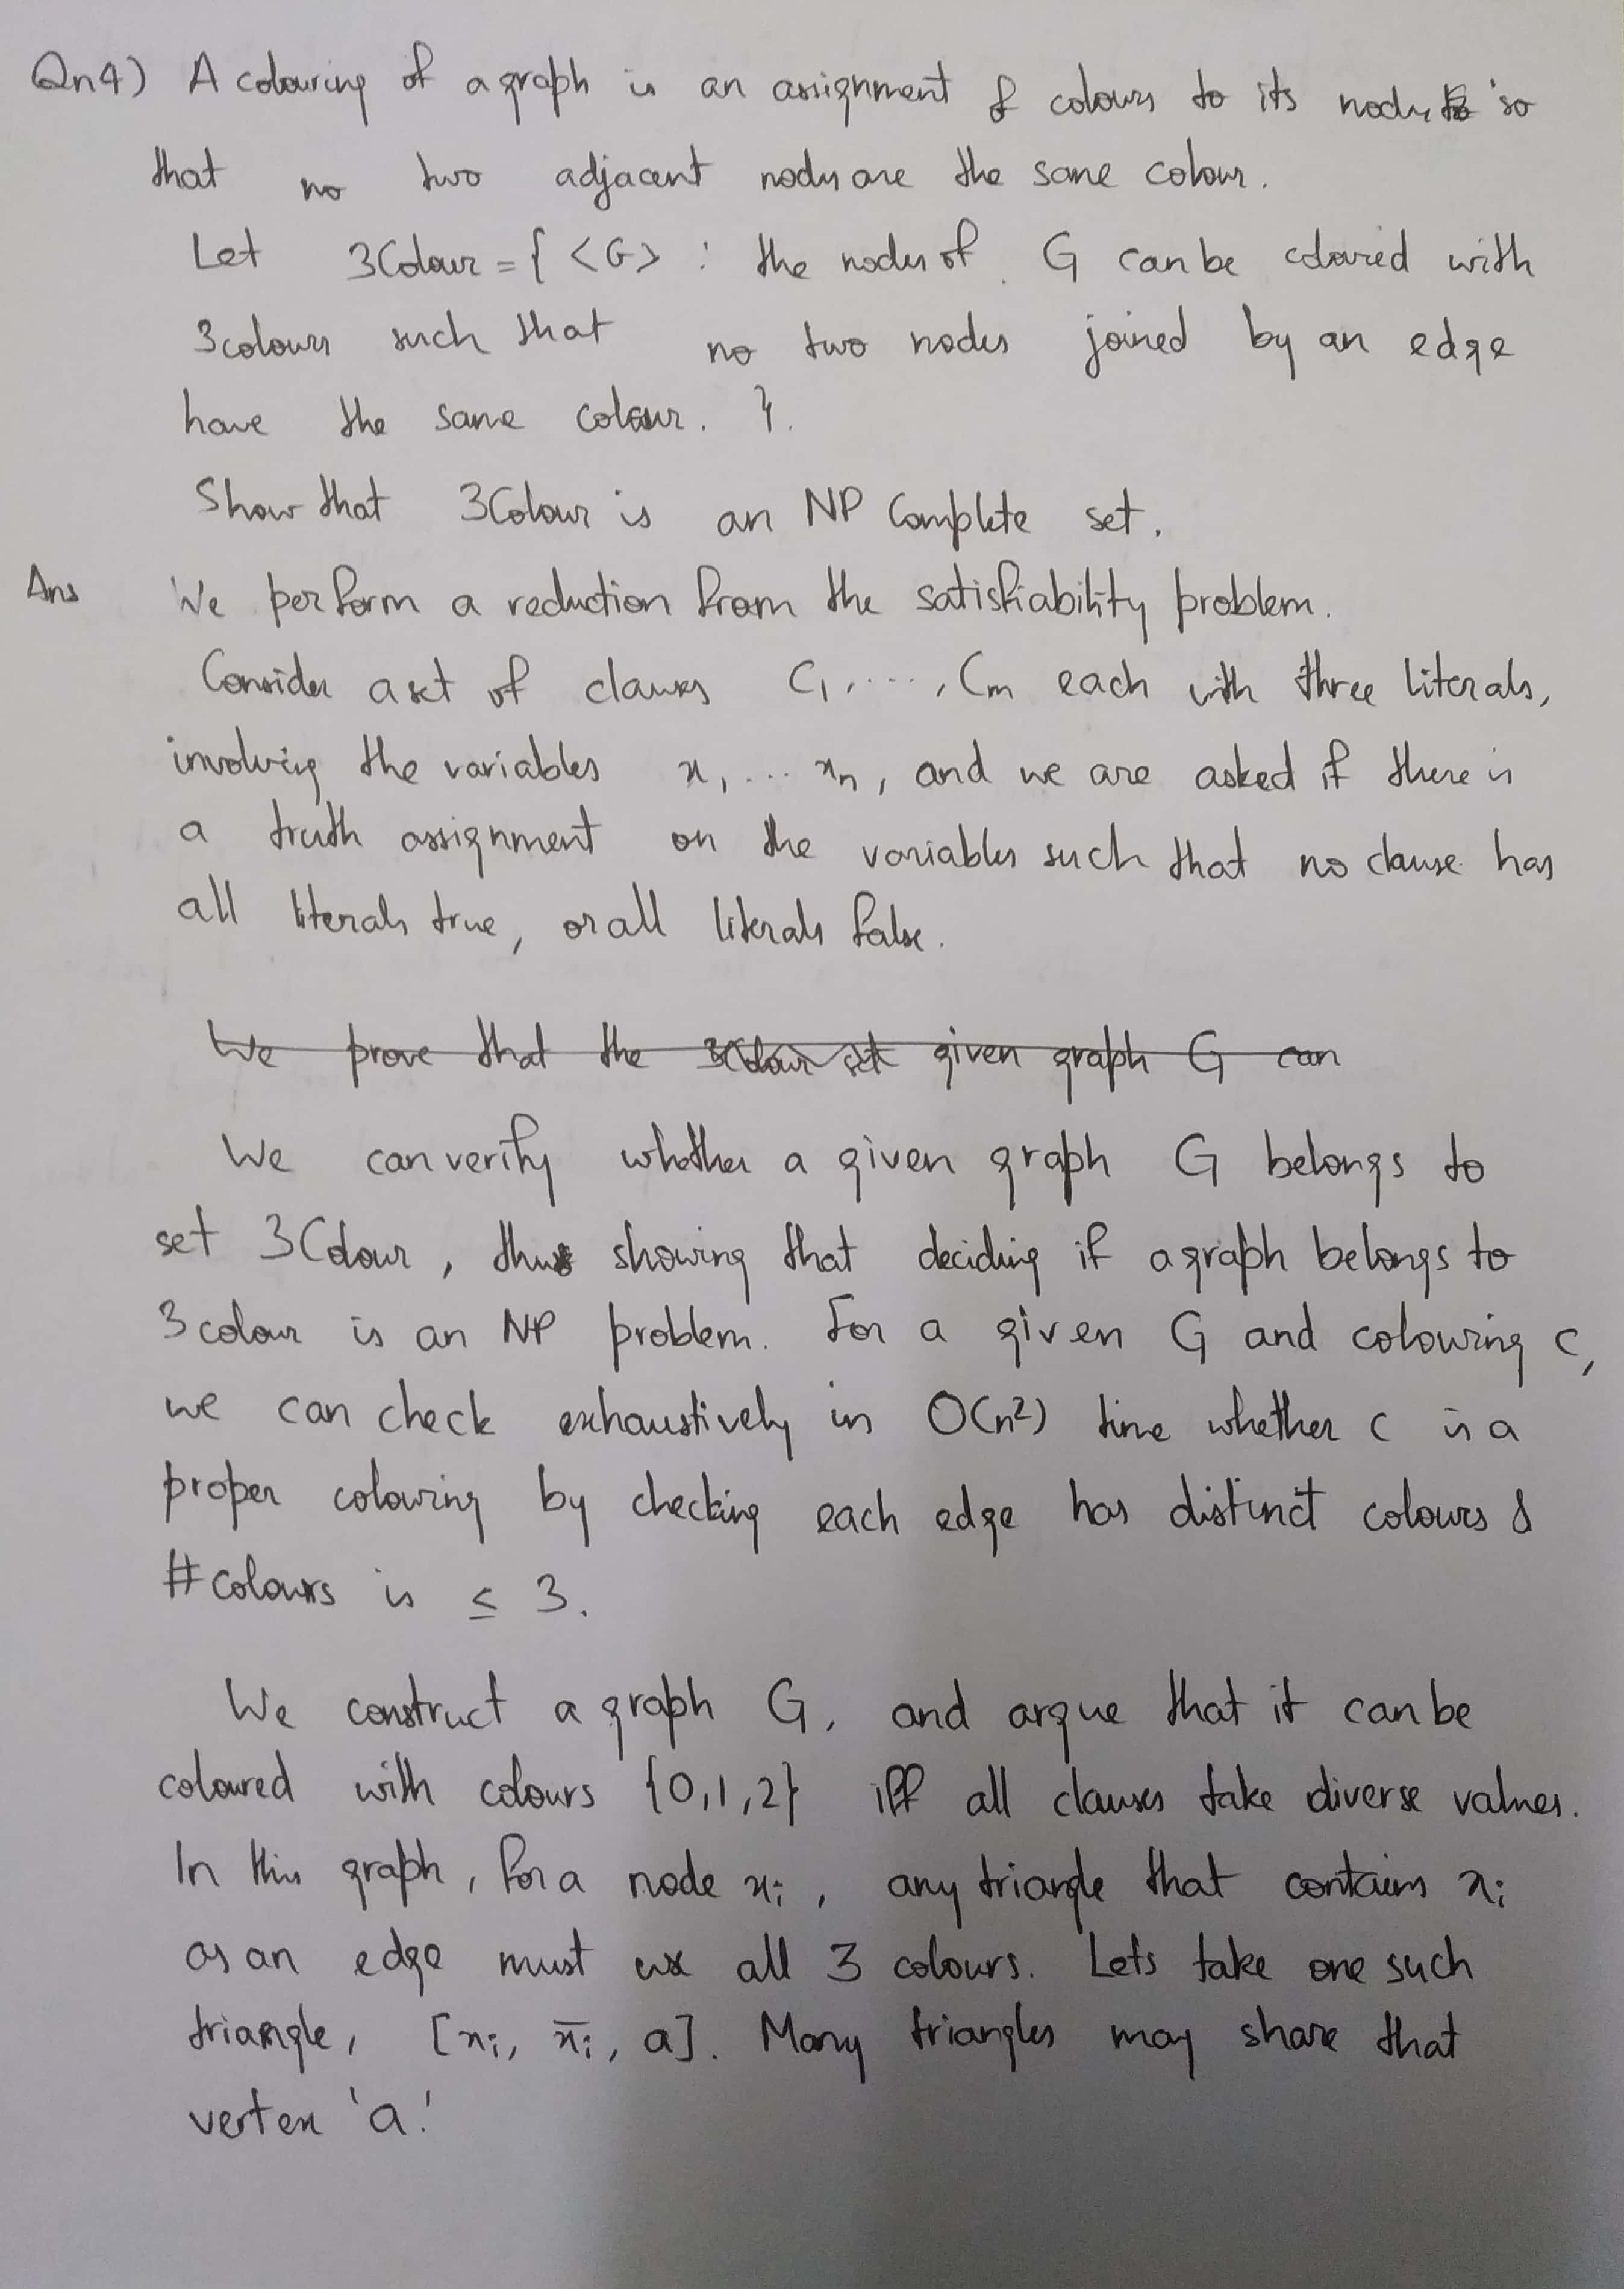 Qn4) A colouring of a graph is an assignment of colours to its nodes so
that no two adjacent nodes are the same colour.
Let 3Colour = { <G> : the nodes of G can be coloured with
3colours such that no two nodes joined by an edge
have the same colour. }.
Show that 3Colour is an NP Complete set.
Ans We perform a reduction from the satisfiability problem.
Consider a set of clauses C₁, ...., Cm each with three literals,
involving the variables x₁ ... xn, and we are asked if there is
a truth assignment on the variables such that no clause has
all literals true, or all literals false.
We prove that the 3Colour set given graph G can
We can verify whether a given graph G belongs to
set 3Colour, thus showing that deciding if a graph belongs to
3colour is an NP problem. For a given G and colouring c,
we can check exhaustively in O(n²) time whether c is a
proper colouring by checking each edge has distinct colours &
#colours is ≤ 3.
We construct a graph G, and argue that it can be
coloured with colours {0,1,2} iff all clauses take diverse values.
In this graph, for a node xi, any triangle that contains xi
as an edge must use all 3 colours. Lets take one such
triangle, [xi, x̄i, a]. Many triangles may share that
vertex 'a'.